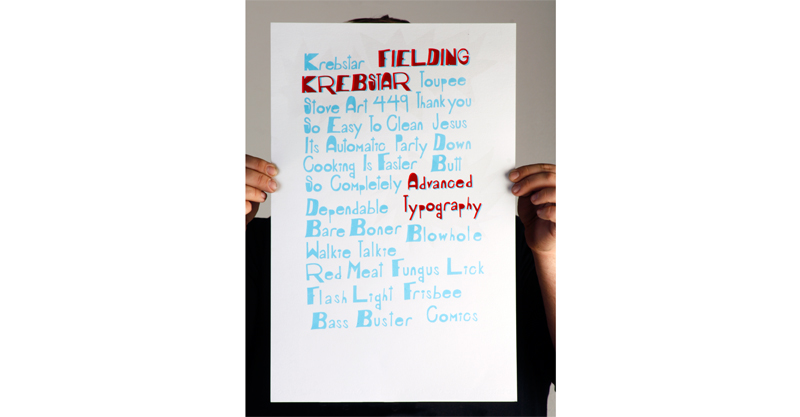 Krebstar FIELDING
KREBSTAR Toupee
Stove Art 449 Thank you
So Easy To Clean Jesus
Its Automatic Party Down
Cooking Is Faster Butt
So Completely Advanced
Dependable Typography
Bare Boner Blowhole
Walkie Talkie
Red Meat Fungus Lick
Flash Light Frisbee
Bass Buster Comics